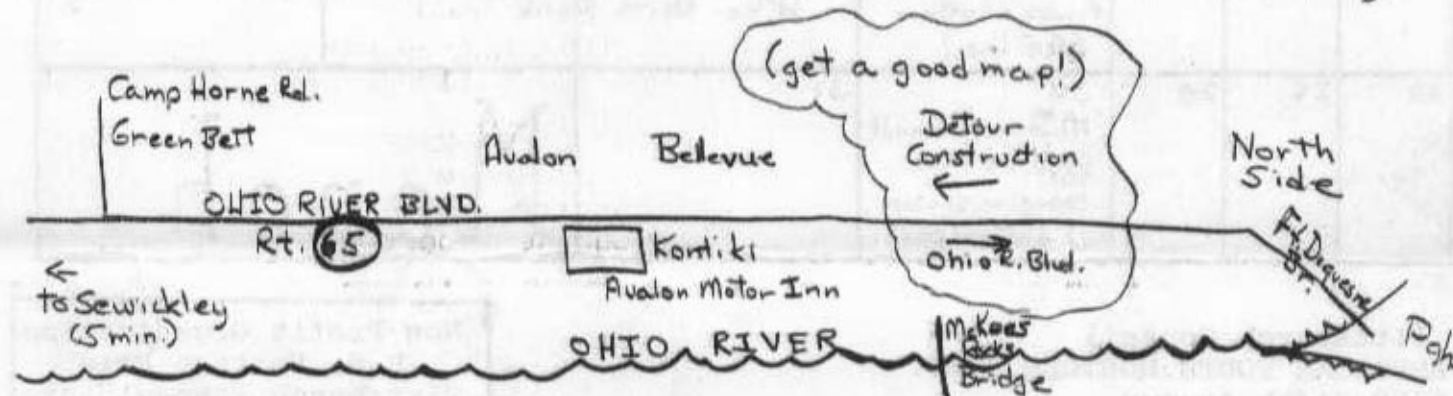 (get a good map!)
Camp Horne Rd.
Green Belt
Avalon
Bellevue
Detour
Construction
North
Side
OHIO RIVER BLVD.
Rt. 65
Kontiki
Avalon Motor Inn
Ohio R. Blvd.
Ft. Duquesne
Br.
to Sewickley
(5 min.)
OHIO RIVER
McKees
Rocks
Bridge
Pgh